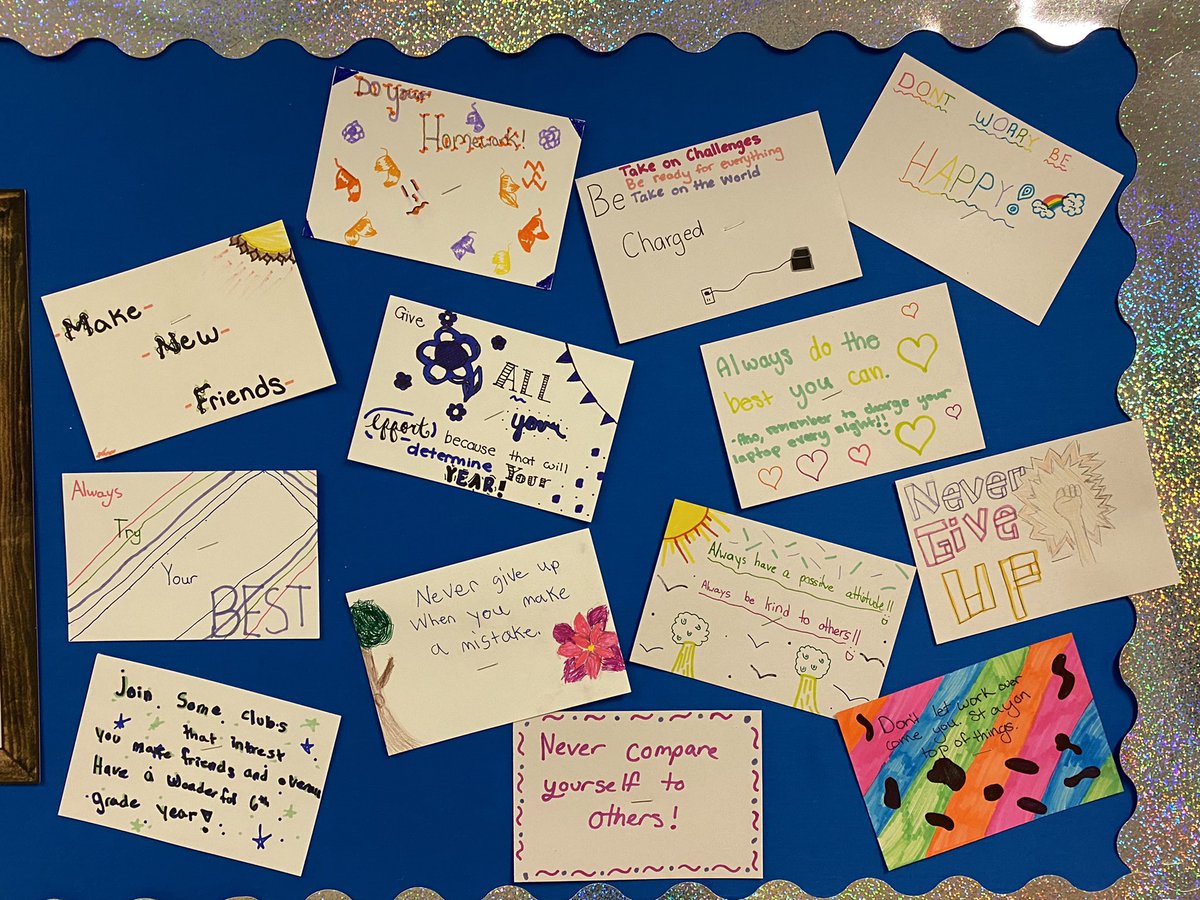 Do Your
Homework!
Take on Challenges
Be ready for everything
Be Take on the World
Charged
DONT WORRY BE
HAPPY!
-Make-
-New-
-Friends-
Give
ALL
your
effort, because that will
determine Your
YEAR!
Always do the
best you can.
-Also, remember to charge your
laptop every night!!
Never
Give
UP
Always
Try
Your
BEST
Never give up
when you make
a mistake.
Always have a positive attitude!!
Always be kind to others!!
Join Some clubs
that intrest
you make friends and
Have a Wonderful 6th
grade year!
Never compare
yourself to
others!
Don't let work over
come you. Stay on
top of things.